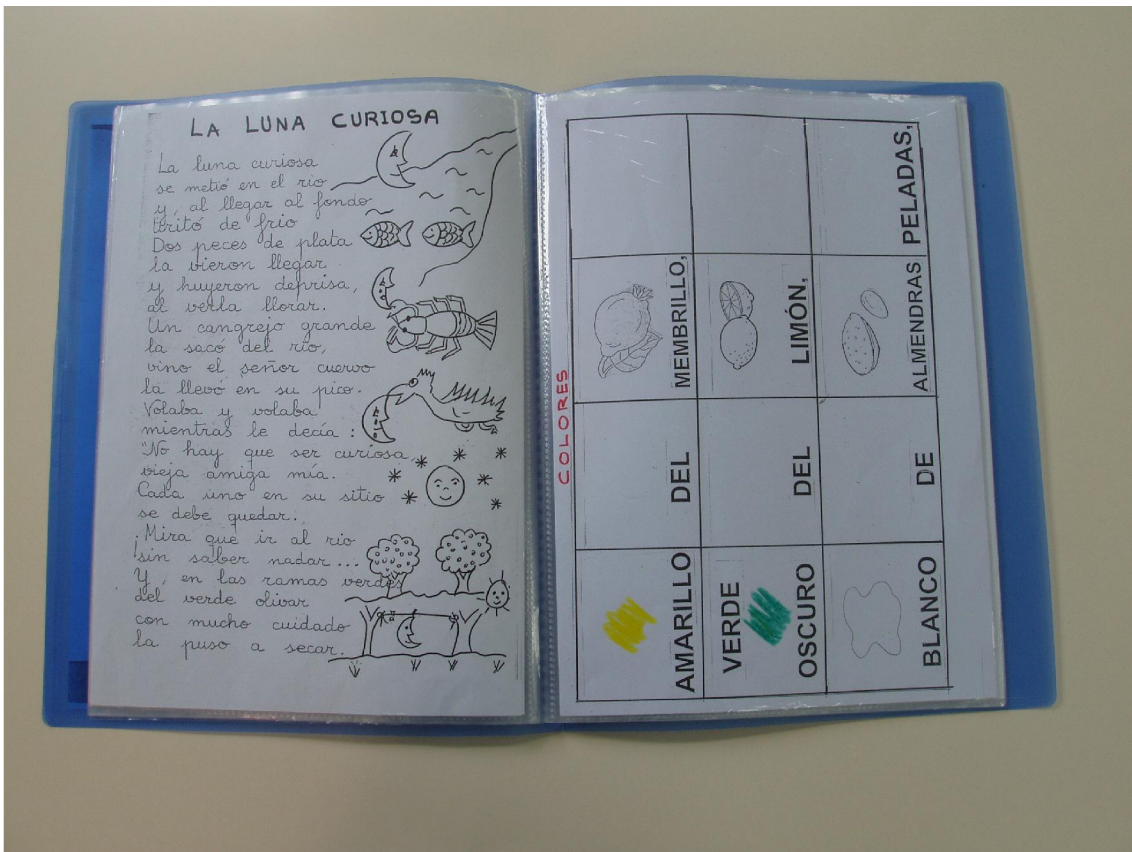 LA LUNA CURIOSA
La luna curiosa
se metió en el río
y, al llegar al fondo
tiritó de frío
Dos peces de plata
la vieron llegar
y huyeron deprisa,
al verla llorar.
Un cangrejo grande
la sacó del río,
vino el señor cuervo
la llevó en su pico.
Volaba y volaba
mientras le decía :
"No hay que ser curiosa,
vieja amiga mía.
Cada uno en su sitio
se debe quedar.
¡Mira que ir al río
sin saber nadar...
Y, en las ramas verdes
del verde olivar
con mucho cuidado
la puso a secar.
COLORES
AMARILLO DEL MEMBRILLO,
VERDE
OSCURO DEL LIMÓN,
BLANCO DE ALMENDRAS PELADAS,